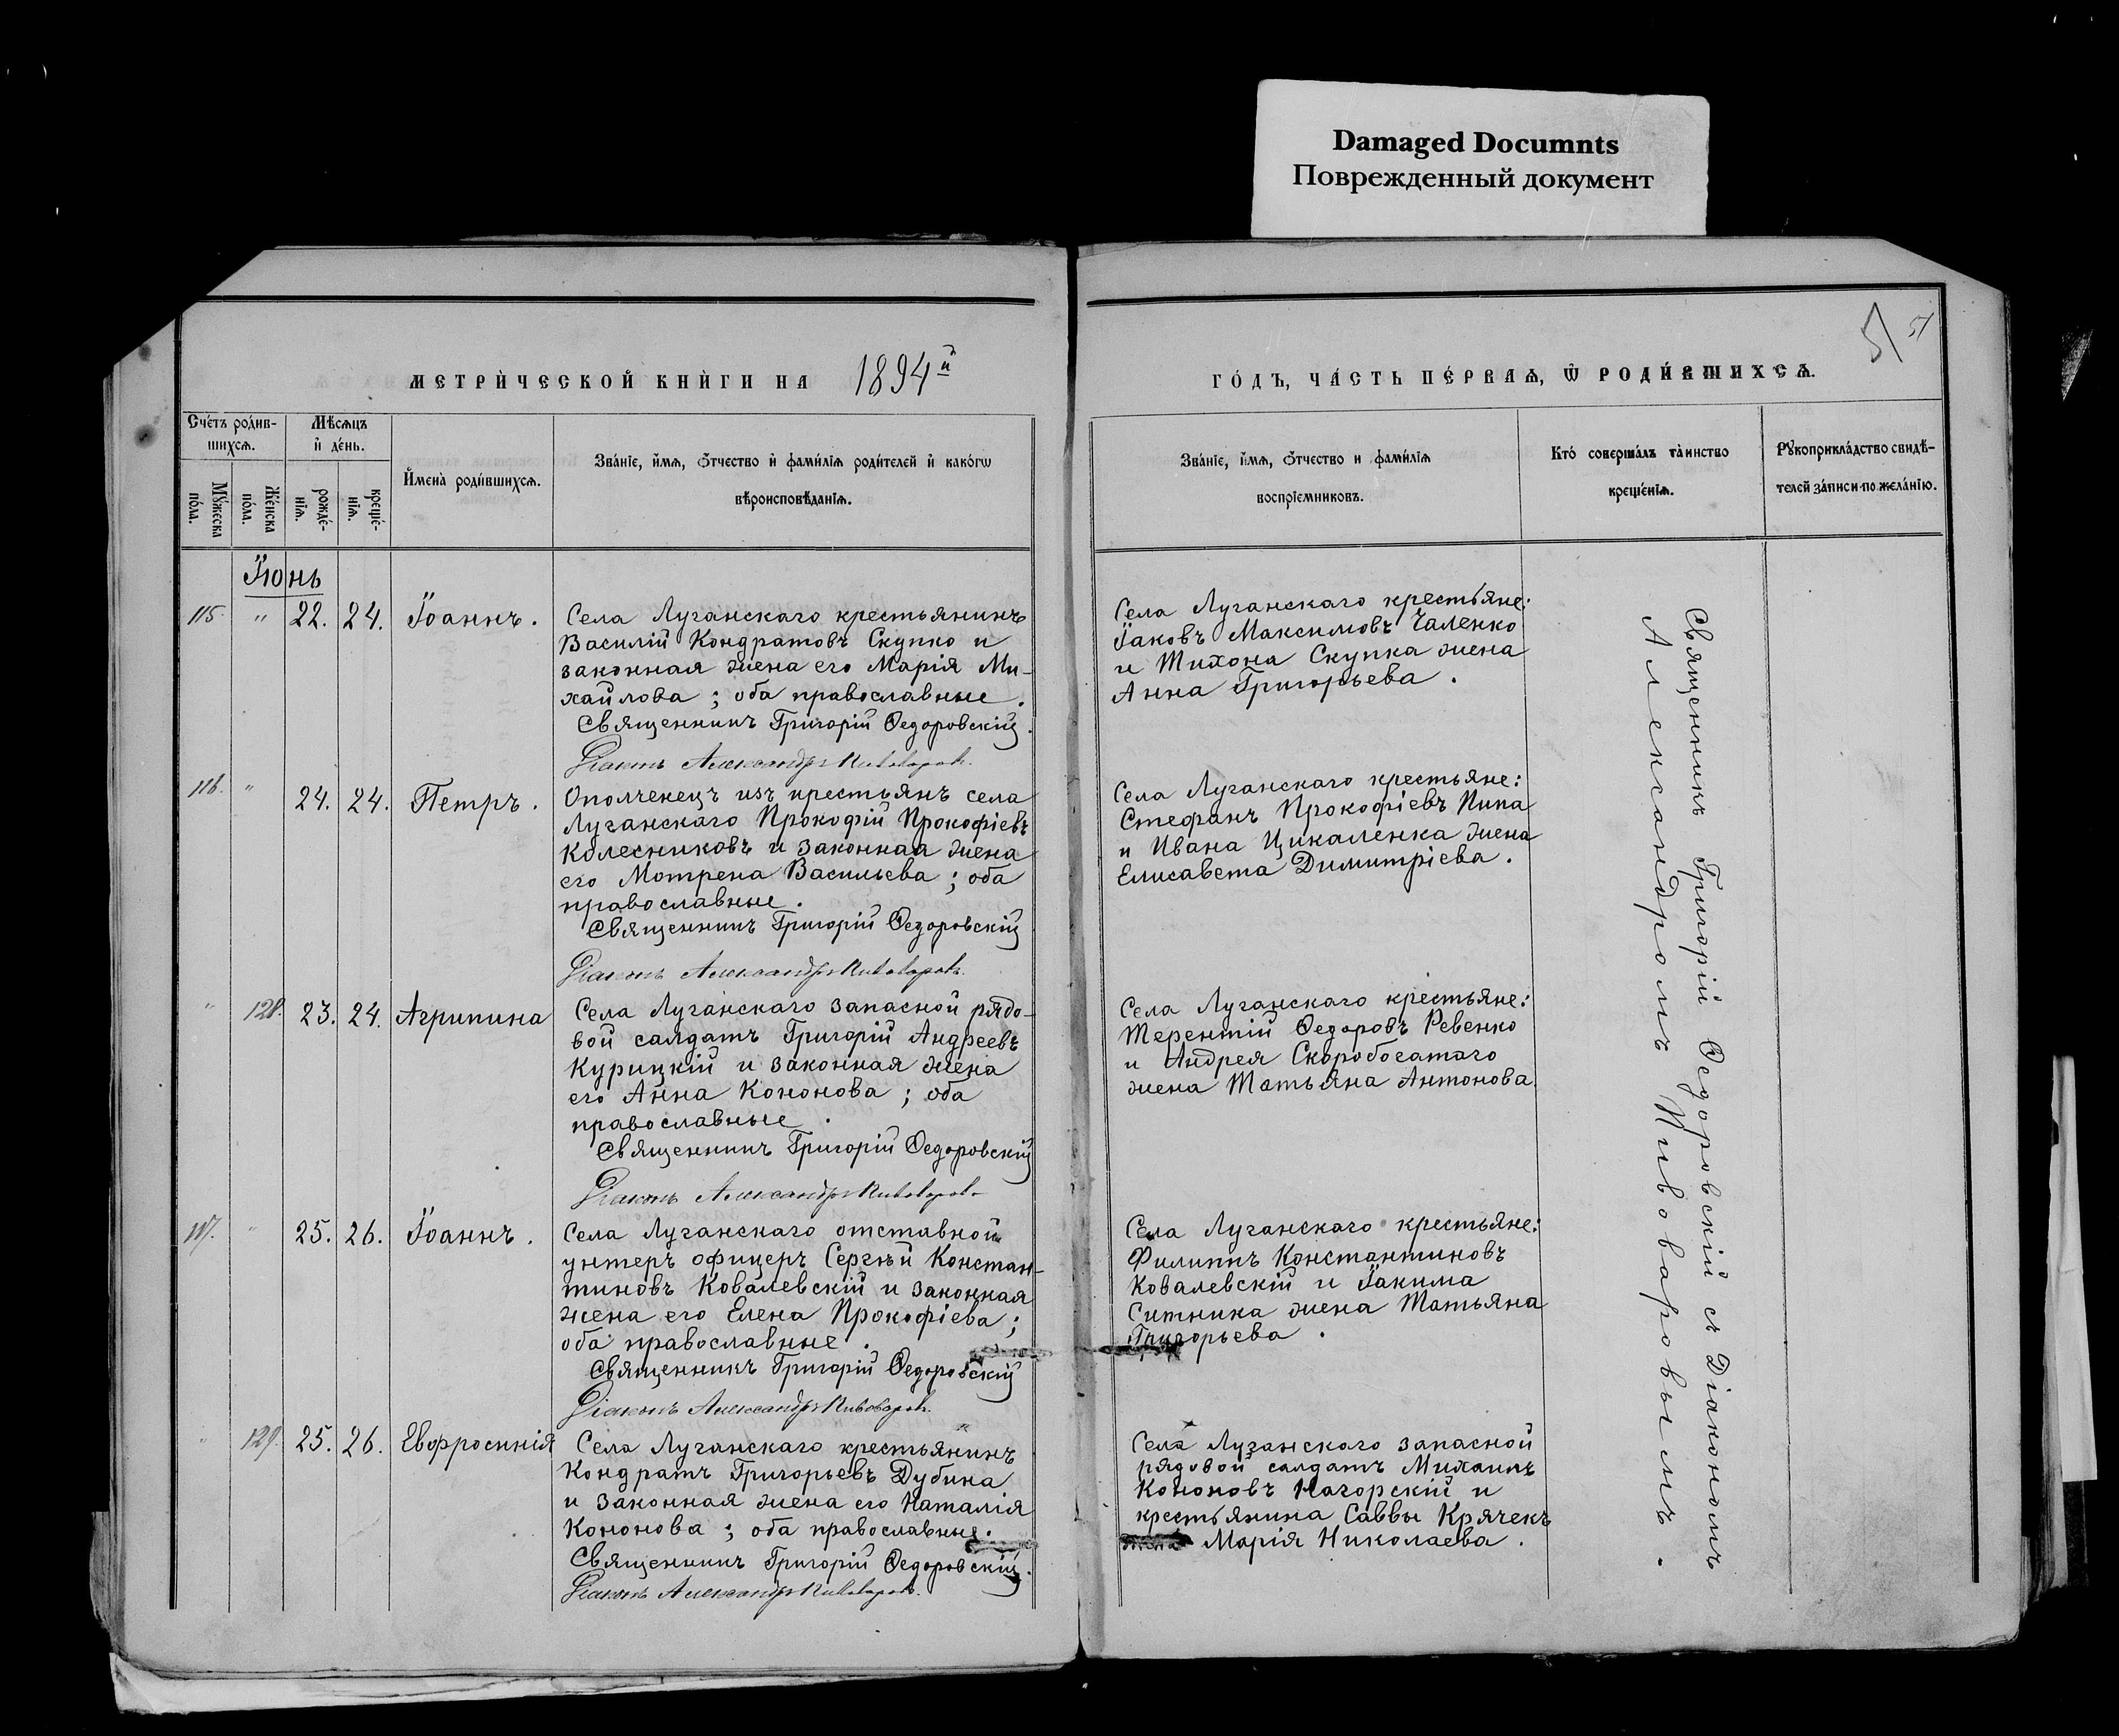 Damaged Documnts
Поврежденный документ
МЕТРИ́ЧЕСКОЙ КНИ́ГИ НА 1894й
ГО́ДЪ, ЧА́СТЬ ПЕ́РВАѦ, Ѿ РОДИ́ВШИХСѦ.
51 51
Сче́тъ роди́в-
шихсѧ.
Мꙋ́жеска по́ла.
Же́нска по́ла.
Мѣ́сѧцъ
и҆ де́нь.
рожде́-
нїѧ.
креще́-
нїѧ.
И҆мена̀ роди́вшихсѧ.
Зва́нїе, и҆́мѧ, ѻ҆́тчество и҆ фами́лїѧ роди́телей и҆ како́гѡ
вѣроисповѣ́данїѧ.
Зва́нїе, и҆́мѧ, ѻ҆́тчество и фами́лїѧ
воспрїе́мниковъ.
Кто̀ соверша́лъ та́инство
креще́нїѧ.
Рꙋкоприкла́дство свидѣ́-
телей за́писи по жела́нїю.
Іюнь
115. " 22. 24. Іоаннъ.
Села Луганскаго крестьянинъ
Василій Кондратовъ Скупко и
законная жена его Марія Ми-
хайлова; оба православные.
Священникъ Григорій Ѳедоровскій.
Діаконъ Александръ Пивоваровъ.
Села Луганскаго крестьяне:
Іаковъ Максимовъ Чаленко
и Тихона Скупка жена
Анна Григорьева.
116. " 24. 24. Петръ.
Ополченецъ изъ крестьянъ села
Луганскаго Прокофій Прокофіевъ
Колесниковъ и законная жена
его Мотрена Васильева; оба
православные.
Священникъ Григорій Ѳедоровскій
Діаконъ Александръ Пивоваровъ.
Села Луганскаго крестьяне:
Стефанъ Прокофіевъ Пипа
и Ивана Цикаленка жена
Елисавета Димитріева.
" 128. 23. 24. Агрипина
Села Луганскаго запасной рядо-
вой салдатъ Григорій Андреевъ
Курицкій и законная жена
его Анна Кононова; оба
православные.
Священникъ Григорій Ѳедоровскій
Діаконъ Александръ Пивоваровъ
Села Луганскаго крестьяне:
Терентій Ѳедоровъ Ревенко
и Андрея Скоробогатаго
жена Татьяна Антонова.
117. " 25. 26. Іоаннъ.
Села Луганскаго отставной
унтеръ офицеръ Сергѣй Констан-
тиновъ Ковалевскій и законная
жена его Елена Прокофіева;
оба православные.
Священникъ Григорій Ѳедоровскій
Діаконъ Александръ Пивоваровъ.
Села Луганскаго крестьяне:
Филиппъ Константиновъ
Ковалевскій и Іакима
Ситника жена Татьяна
Григорьева.
" 129. 25. 26. Евфросинія
Села Луганскаго крестьянинъ
Кондратъ Григорьевъ Дубина
и законная жена его Наталія
Кононова; оба православные.
Священникъ Григорій Ѳедоровскій.
Діаконъ Александръ Пивоваровъ.
Села Луганскаго запасной
рядовой салдатъ Михаилъ
Кононовъ Нагорскій и
крестьянина Саввы Крячекъ
жена Марія Николаева.
Священникъ Григорій Ѳедоровскій съ Діакономъ
Александромъ Пивоваровымъ.